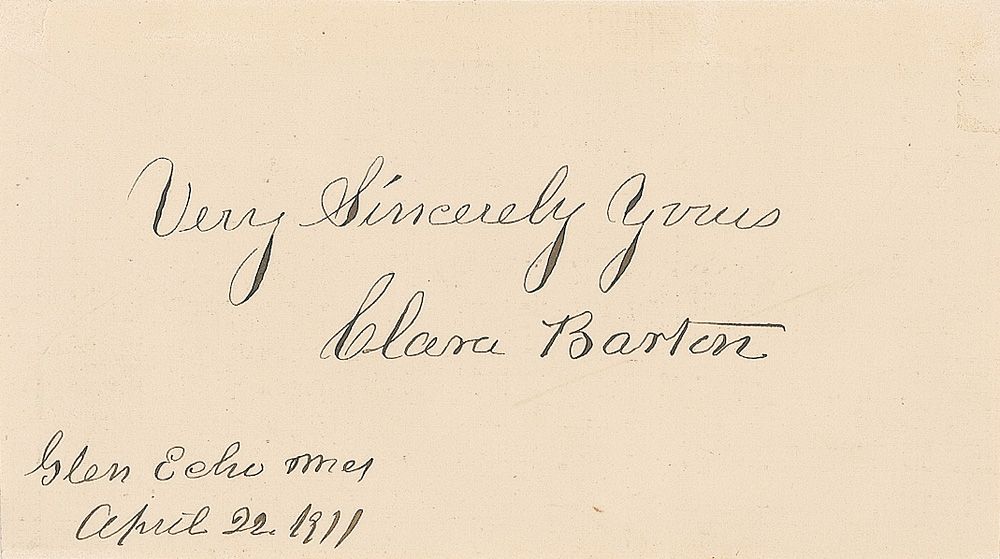 Very Sincerely Yours
Clara Barton
Glen Echo Md
April 22. 1911